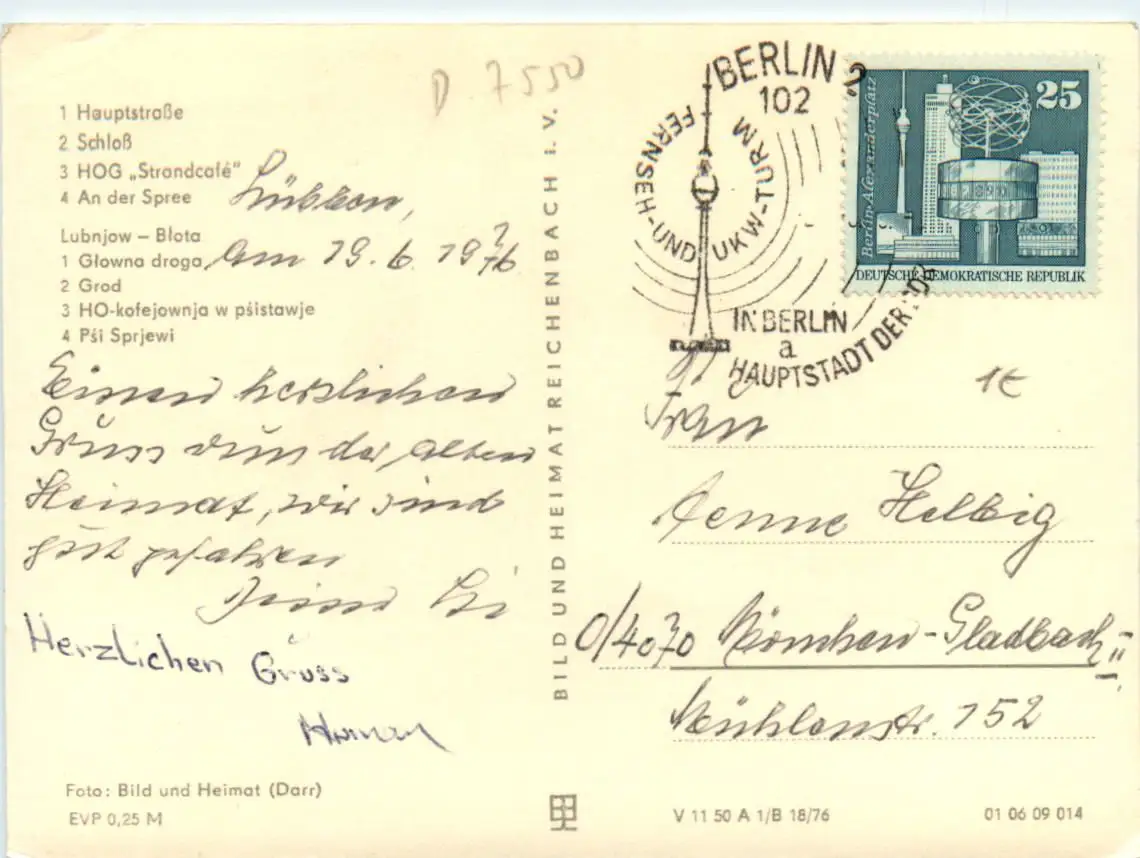 D 7550
1 Hauptstraße
2 Schloß
3 HOG „Strandcafé"
4 An der Spree
Lübben,
Lubnjow – Błota
1 Głowna droga
am 19. 6. 1976
2 Grod
3 HO-kofejownja w pśistawje
4 Pśi Sprjewi
Einen herzlichen
Gruss von der alten
Heimat, wir sind
gut gefahren
Herzlichen Gruss
Foto: Bild und Heimat (Darr)
EVP 0,25 M
BILD UND HEIMAT REICHENBACH I. V.
BERLIN 2
102
FERNSEH-UND UKW-TURM
IN BERLIN
a
HAUPTSTADT DER DDR
25
Berlin-Alexanderplatz
DEUTSCHE DEMOKRATISCHE REPUBLIK
1€
Frau
Aenne Helbig
4070 München-Gladbach II
Mühlenstr. 152
V 11 50 A 1/B 18/76
01 06 09 014